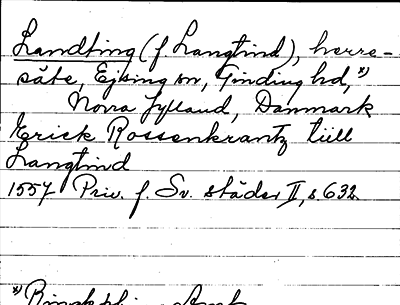 Landting (f Langtind), herre-
säte, Ejsing sn, Ginding hd, *)
Norra Jylland, Danmark
Erick Rossenkrantz tiill
Langtind
1557 Priv. f. Sv. städer II, s. 632
*)